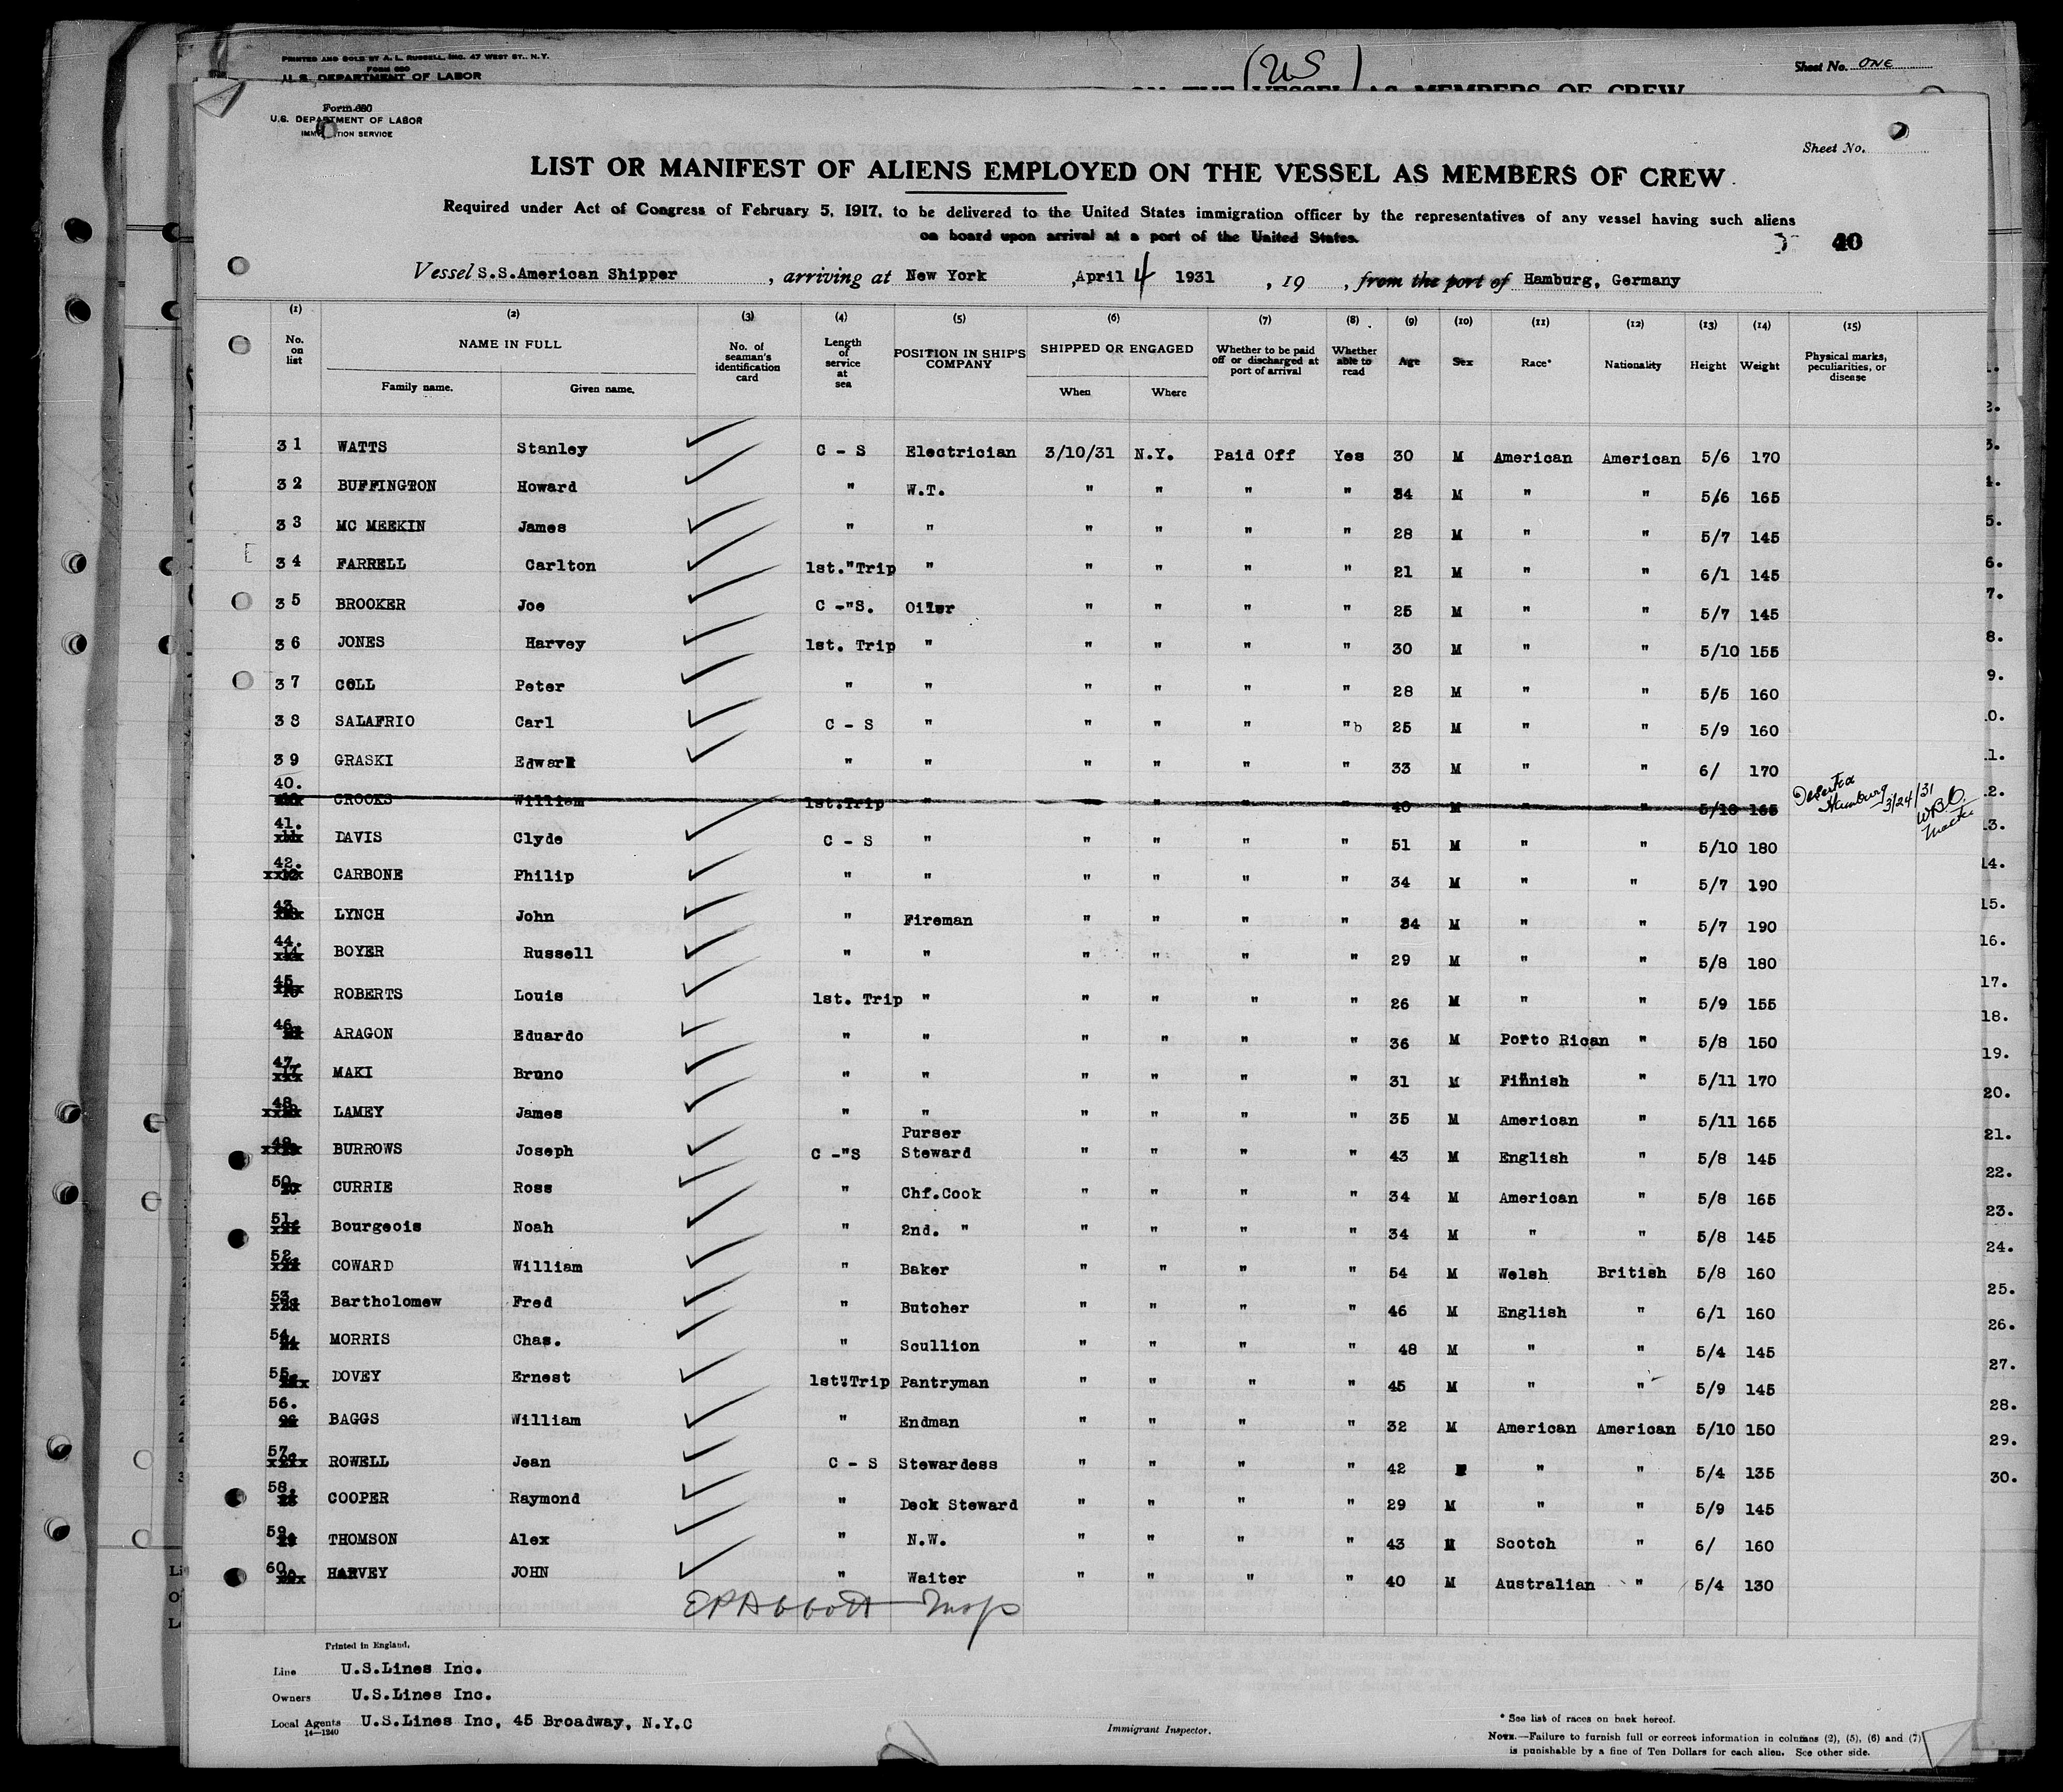 PRINTED AND SOLD BY A. L. RUSSELL, INC. 47 WEST ST., N.Y.
Form 680
U.S. DEPARTMENT OF LABOR
(US)
Sheet No. ONE
ON THE VESSEL AS MEMBERS OF CREW
Form 680
U.S. DEPARTMENT OF LABOR
IMMIGRATION SERVICE
Sheet No.
LIST OR MANIFEST OF ALIENS EMPLOYED ON THE VESSEL AS MEMBERS OF CREW
Required under Act of Congress of February 5, 1917, to be delivered to the United States immigration officer by the representatives of any vessel having such aliens
on board upon arrival at a port of the United States.
40
Vessel S.S.American Shipper , arriving at New York ,April 4 1931 , 19 , from the port of Hamburg, Germany
(1) (2) (3) (4) (5) (6) (7) (8) (9) (10) (11) (12) (13) (14) (15)
No. on list NAME IN FULL Family name. Given name. No. of seaman's identification card Length of service at sea POSITION IN SHIP'S COMPANY SHIPPED OR ENGAGED When Where Whether to be paid off or discharged at port of arrival Whether able to read Age Sex Race* Nationality Height Weight Physical marks, peculiarities, or disease
31 WATTS Stanley C - S Electrician 3/10/31 N.Y. Paid Off Yes 30 M American American 5/6 170
32 BUFFINGTON Howard " W.T. " " " " 34 M " " 5/6 165
33 MC MEEKIN James " " " " " " 28 M " " 5/7 145
34 FARRELL Carlton 1st."Trip " " " " " 21 M " " 6/1 145
35 BROOKER Joe C -"S. Oiler " " " " 25 M " " 5/7 145
36 JONES Harvey 1st. Trip " " " " " 30 M " " 5/10 155
37 COLL Peter " " " " " " 28 M " " 5/5 160
38 SALAFRIO Carl C - S " " " " " 25 M " " 5/9 160
39 GRASKI Edward " " " " " " 33 M " " 6/ 170
40. CROOKS William 1st.Trip " " " " " 40 M " " 5/10 165 Deserted Hamburg 3/24/31 WBO Master
41. DAVIS Clyde C - S " " " " " 51 M " " 5/10 180
42. CARBONE Philip " " " " " " 34 M " " 5/7 190
43 LYNCH John " Fireman " " " " 34 M " " 5/7 190
44. BOYER Russell " " " " " " 29 M " " 5/8 180
45 ROBERTS Louis 1st. Trip " " " " " 26 M " " 5/9 155
46 ARAGON Eduardo " " " " " " 36 M Porto Rican " 5/8 150
47. MAKI Bruno " " " " " " 31 M Finnish " 5/11 170
48 LAMEY James " " " " " " 35 M American " 5/11 165
49 BURROWS Joseph C -"S Purser Steward " " " " 43 M English " 5/8 145
50 CURRIE Ross " Chf.Cook " " " " 34 M American " 5/8 165
51 Bourgeois Noah " 2nd. " " " " " 34 M " " 5/8 145
52. COWARD William " Baker " " " " 54 M Welsh British 5/8 160
53 Bartholomew Fred " Butcher " " " " 46 M English " 6/1 160
54 MORRIS Chas. " Scullion " " " " 48 M " " 5/4 145
55 DOVEY Ernest 1st".Trip Pantryman " " " " 45 M " " 5/9 145
56. BAGGS William " Endman " " " " 32 M American American 5/10 150
57. ROWELL Jean C - S Stewardess " " " " 42 F " " 5/4 135
58. COOPER Raymond " Deck Steward " " " " 29 M " " 5/9 145
59 THOMSON Alex " N.W. " " " " 43 M Scotch " 6/ 160
60. HARVEY JOHN " Waiter " " " " 40 M Australian " 5/4 130
E P Abbott Insp
Printed in England.
Line U.S.Lines Inc.
Owners U.S.Lines Inc.
Local Agents U.S.Lines Inc, 45 Broadway, N.Y.C
14—1240
Immigrant Inspector.
* See list of races on back hereof.
NOTE.—Failure to furnish full or correct information in columns (2), (5), (6) and (7)
is punishable by a fine of Ten Dollars for each alien. See other side.
1.
2.
3.
4.
5.
6.
7.
8.
9.
10.
11.
12.
13.
14.
15.
16.
17.
18.
19.
20.
21.
22.
23.
24.
25.
26.
27.
28.
29.
30.